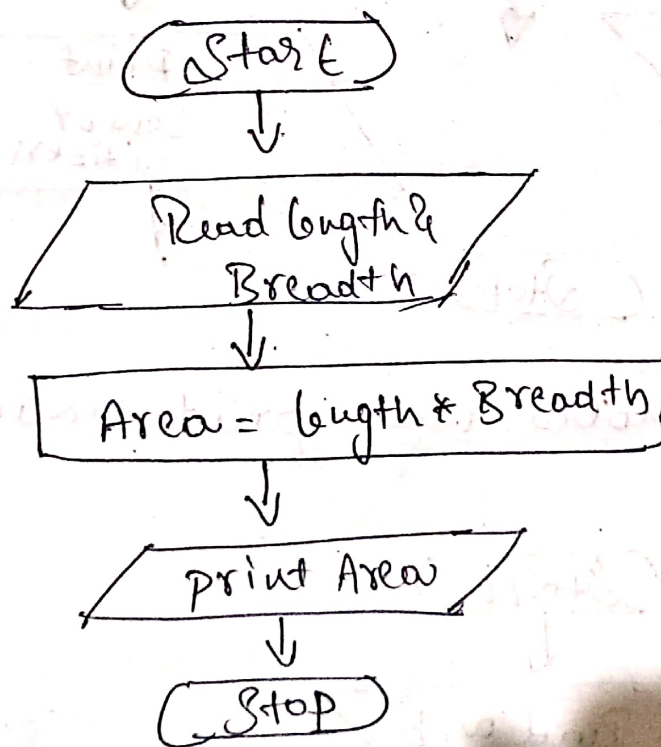 Start
Read length &
Breadth
Area = length * Breadth
print Area
Stop